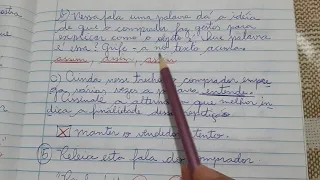 b) Nessa fala uma palavra dá a ideia
de que o comprador faz gestos para
explicar como é o objeto. Que palavra
é essa? Grife-a no texto acima.
assim, assim, assim
c) Ainda nesse trecho o comprador empre-
ga várias vezes a palavra entende.
Assinale a alternativa que melhor in-
dica a finalidade dessa repetição.
X manter o vendedor atento.
5) Releia esta fala do comprador